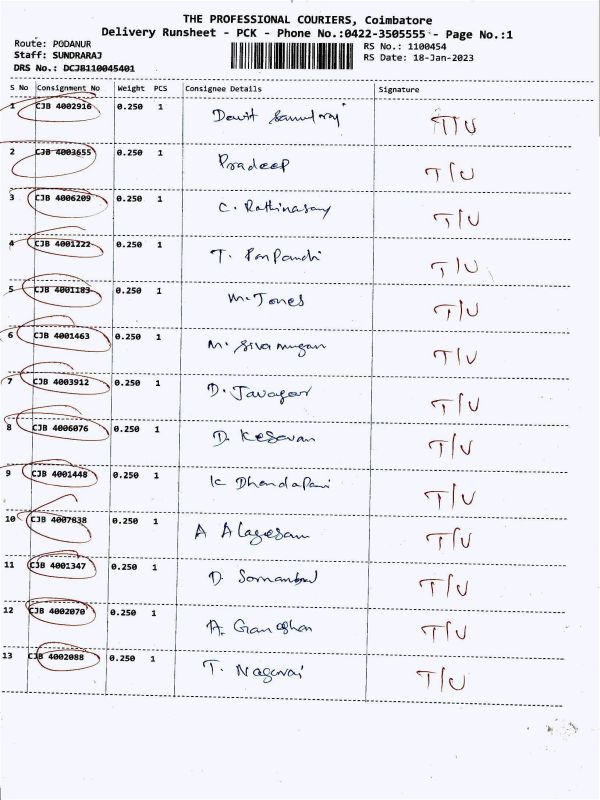 THE PROFESSIONAL COURIERS, Coimbatore
Delivery Runsheet - PCK - Phone No.:0422-3505555 - Page No.:1
Route: PODANUR
RS No.: 1100454
Staff: SUNDRARAJ
RS Date: 18-Jan-2023
DRS No.: DCJB110045401
S No Consignment No Weight PCS Consignee Details Signature
1 CJB 4002916 0.250 1 T/U
2 CJB 4003655 0.250 1 Pradeep T/U
3 CJB 4006209 0.250 1 C. Rathinasamy T/U
4 CJB 4001222 0.250 1 T. T/U
5 CJB 4001183 0.250 1 M. Jones T/U
6 CJB 4001463 0.250 1 M. Siva murugan T/U
7 CJB 4003912 0.250 1 D. T/U
8 CJB 4006076 0.250 1 D. Kesavan T/U
9 CJB 4001448 0.250 1 K Dhandapani T/U
10 CJB 4007838 0.250 1 A T/U
11 CJB 4001347 0.250 1 D. T/U
12 CJB 4002070 0.250 1 A. T/U
13 CJB 4002088 0.250 1 T. Nagaraj T/U